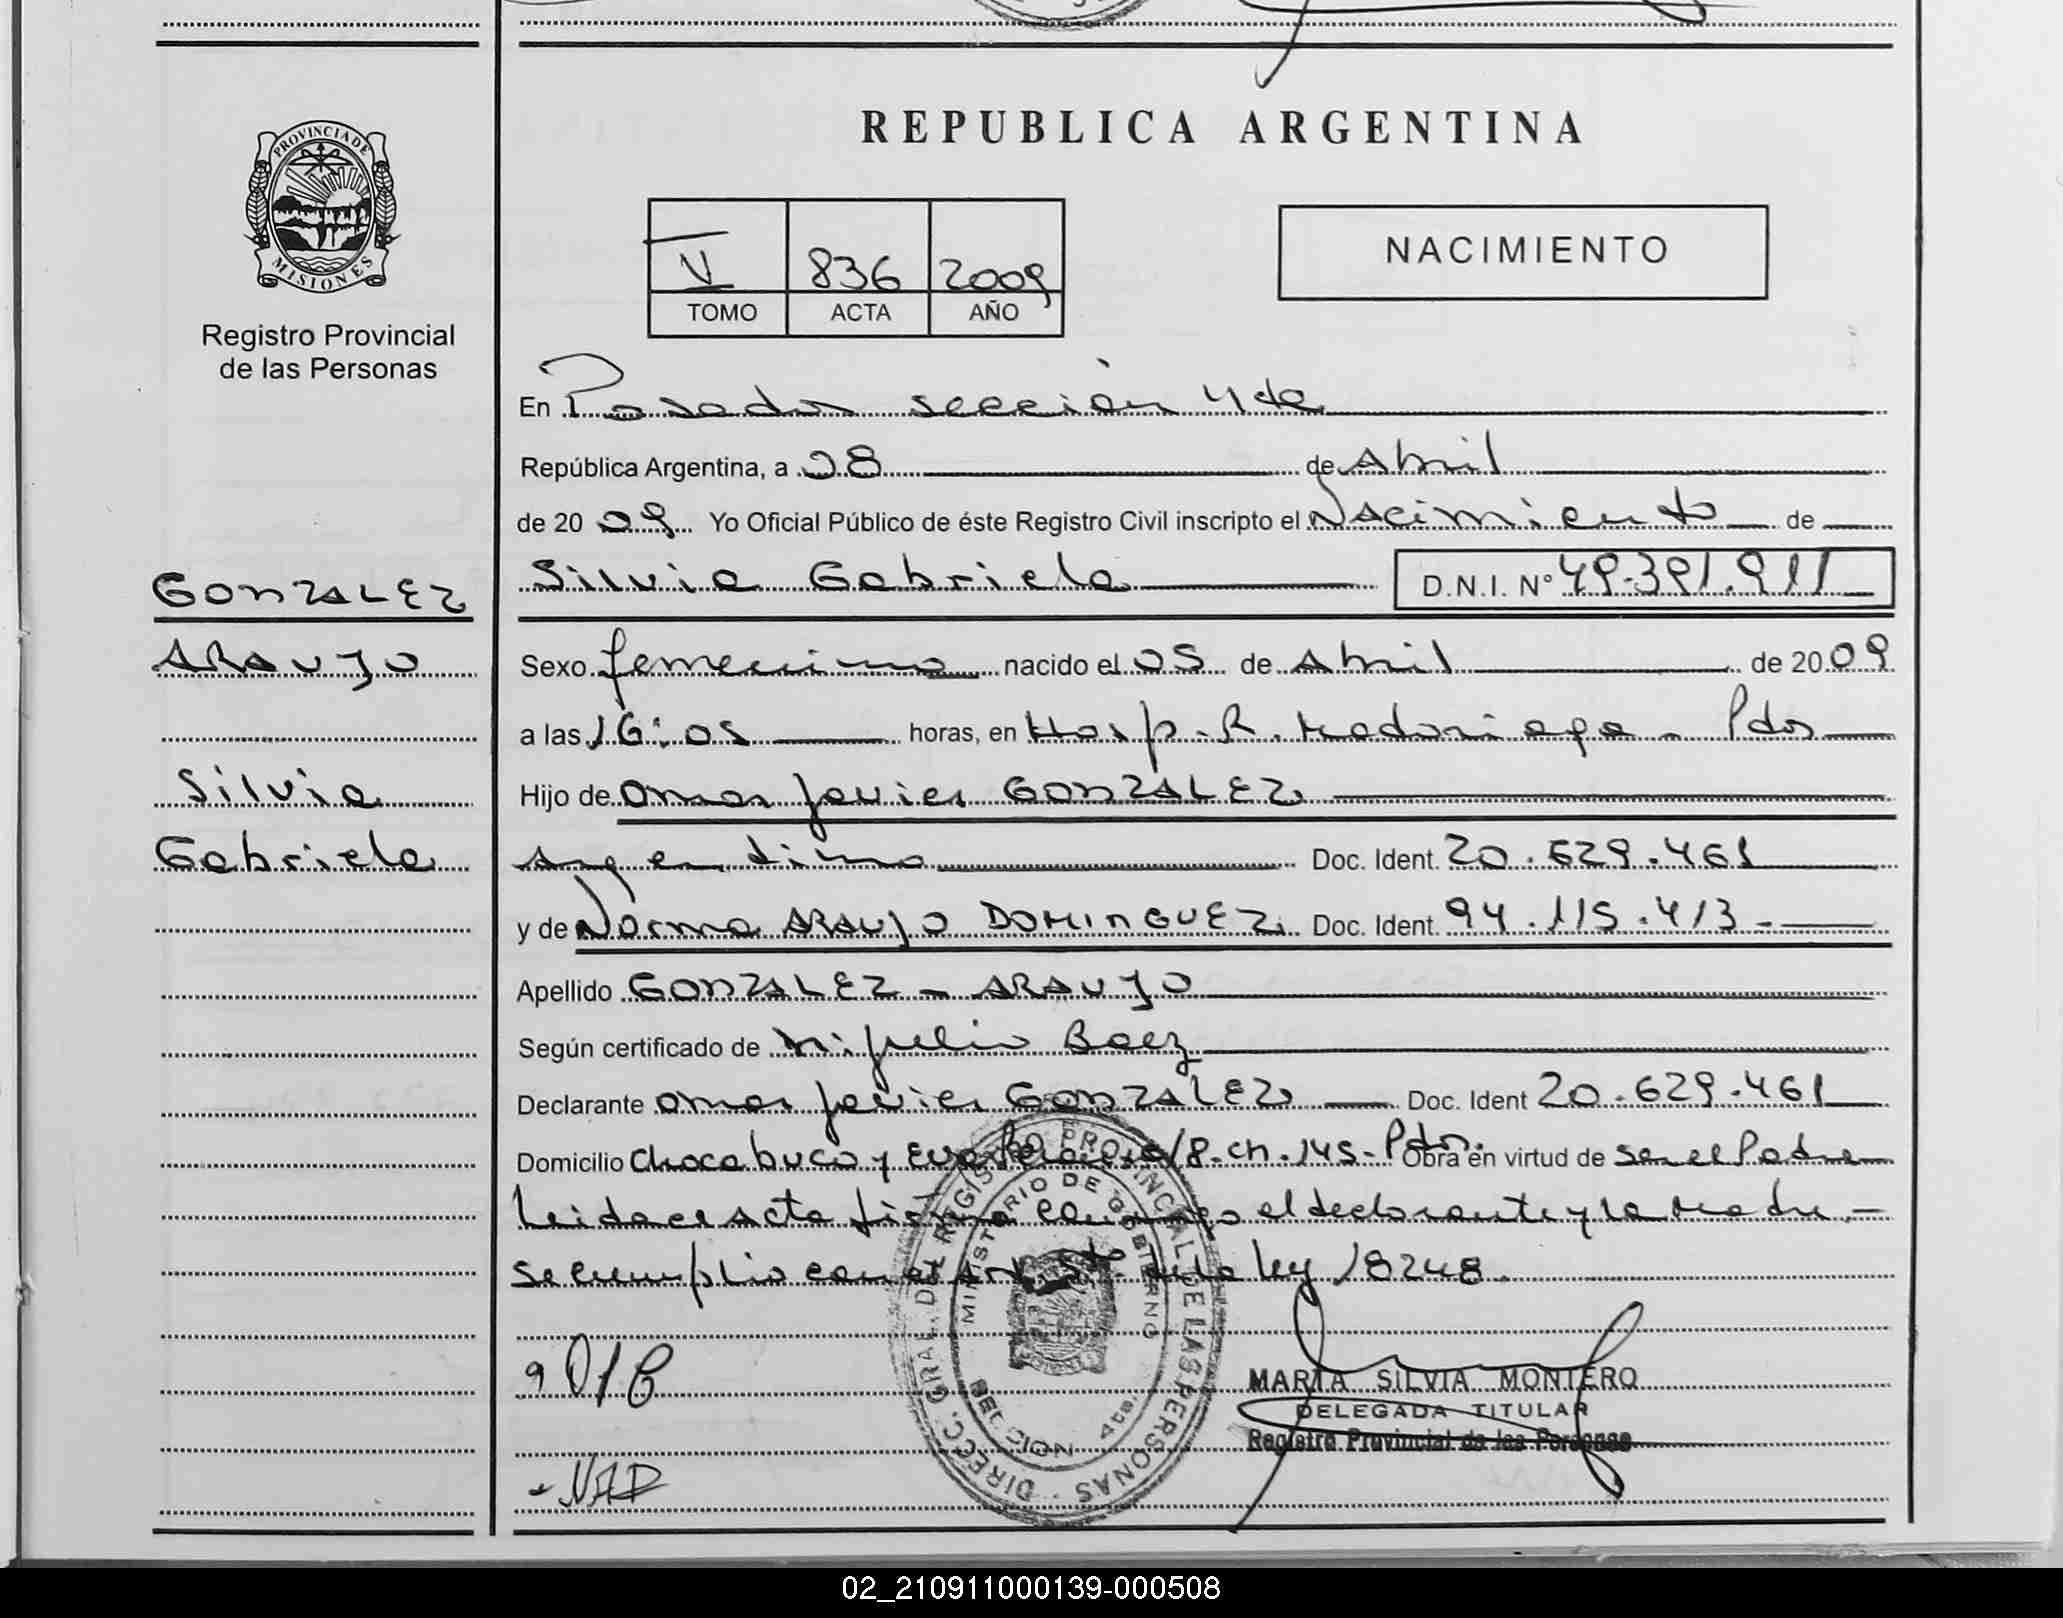 REPUBLICA ARGENTINA
PROVINCIA DE MISIONES
Registro Provincial
de las Personas
V 836 2009
TOMO ACTA AÑO
NACIMIENTO
En Posadas sección 4ta
República Argentina, a 08 de Abril
de 20 09 Yo Oficial Público de éste Registro Civil inscripto el Nacimiento de
Silvia Gabriela D.N.I. Nº 49.391.911
GONZALEZ
ARAUJO
Silvia
Gabriela
Sexo femenino nacido el 05 de Abril de 20 09
a las 16:05 horas, en Hosp. R. Madariaga - Pdas
Hijo de Omar Javier GONZALEZ
Argentino Doc. Ident. 20.629.461
y de Norma ARAUJO DOMINGUEZ Doc. Ident. 94.115.413.-
Apellido GONZALEZ - ARAUJO
Según certificado de Baez
Declarante Omar Javier GONZALEZ Doc. Ident 20.629.461
Domicilio Chacabuco y Eva 8-ch.145-Pdas. Obra en virtud de ser el Padre
Leida el acta firma el declarante y la Madre.-
se cumplio con el Art. 5to de la ley 18248.
DIRECC. GRAL. DE REGISTRO PROVINCIAL DE LAS PERSONAS
MINISTERIO DE GOBIERNO
4ta.
MARIA SILVIA MONTERO
DELEGADA TITULAR
Registro Provincial de las Personas
02_210911000139-000508